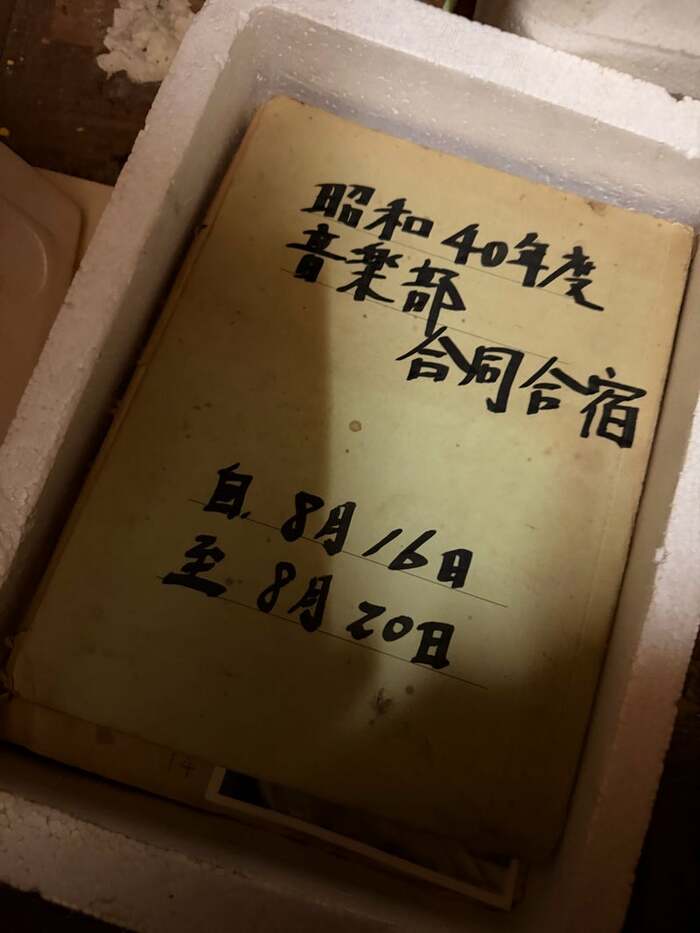 昭和40年度
音楽部
合同合宿
自. 8月16日
至 8月20日